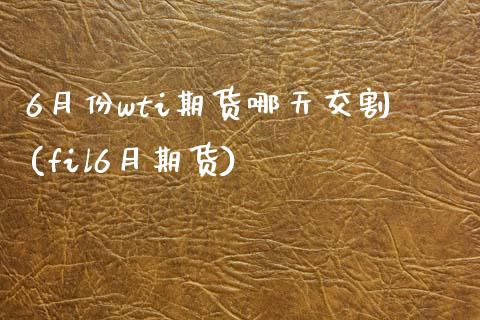 6月份wti期货哪天交割
(fil6月期货)